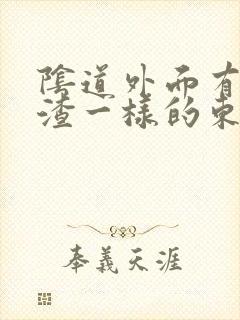 陰道外面有
渣一樣的東
奉義天涯